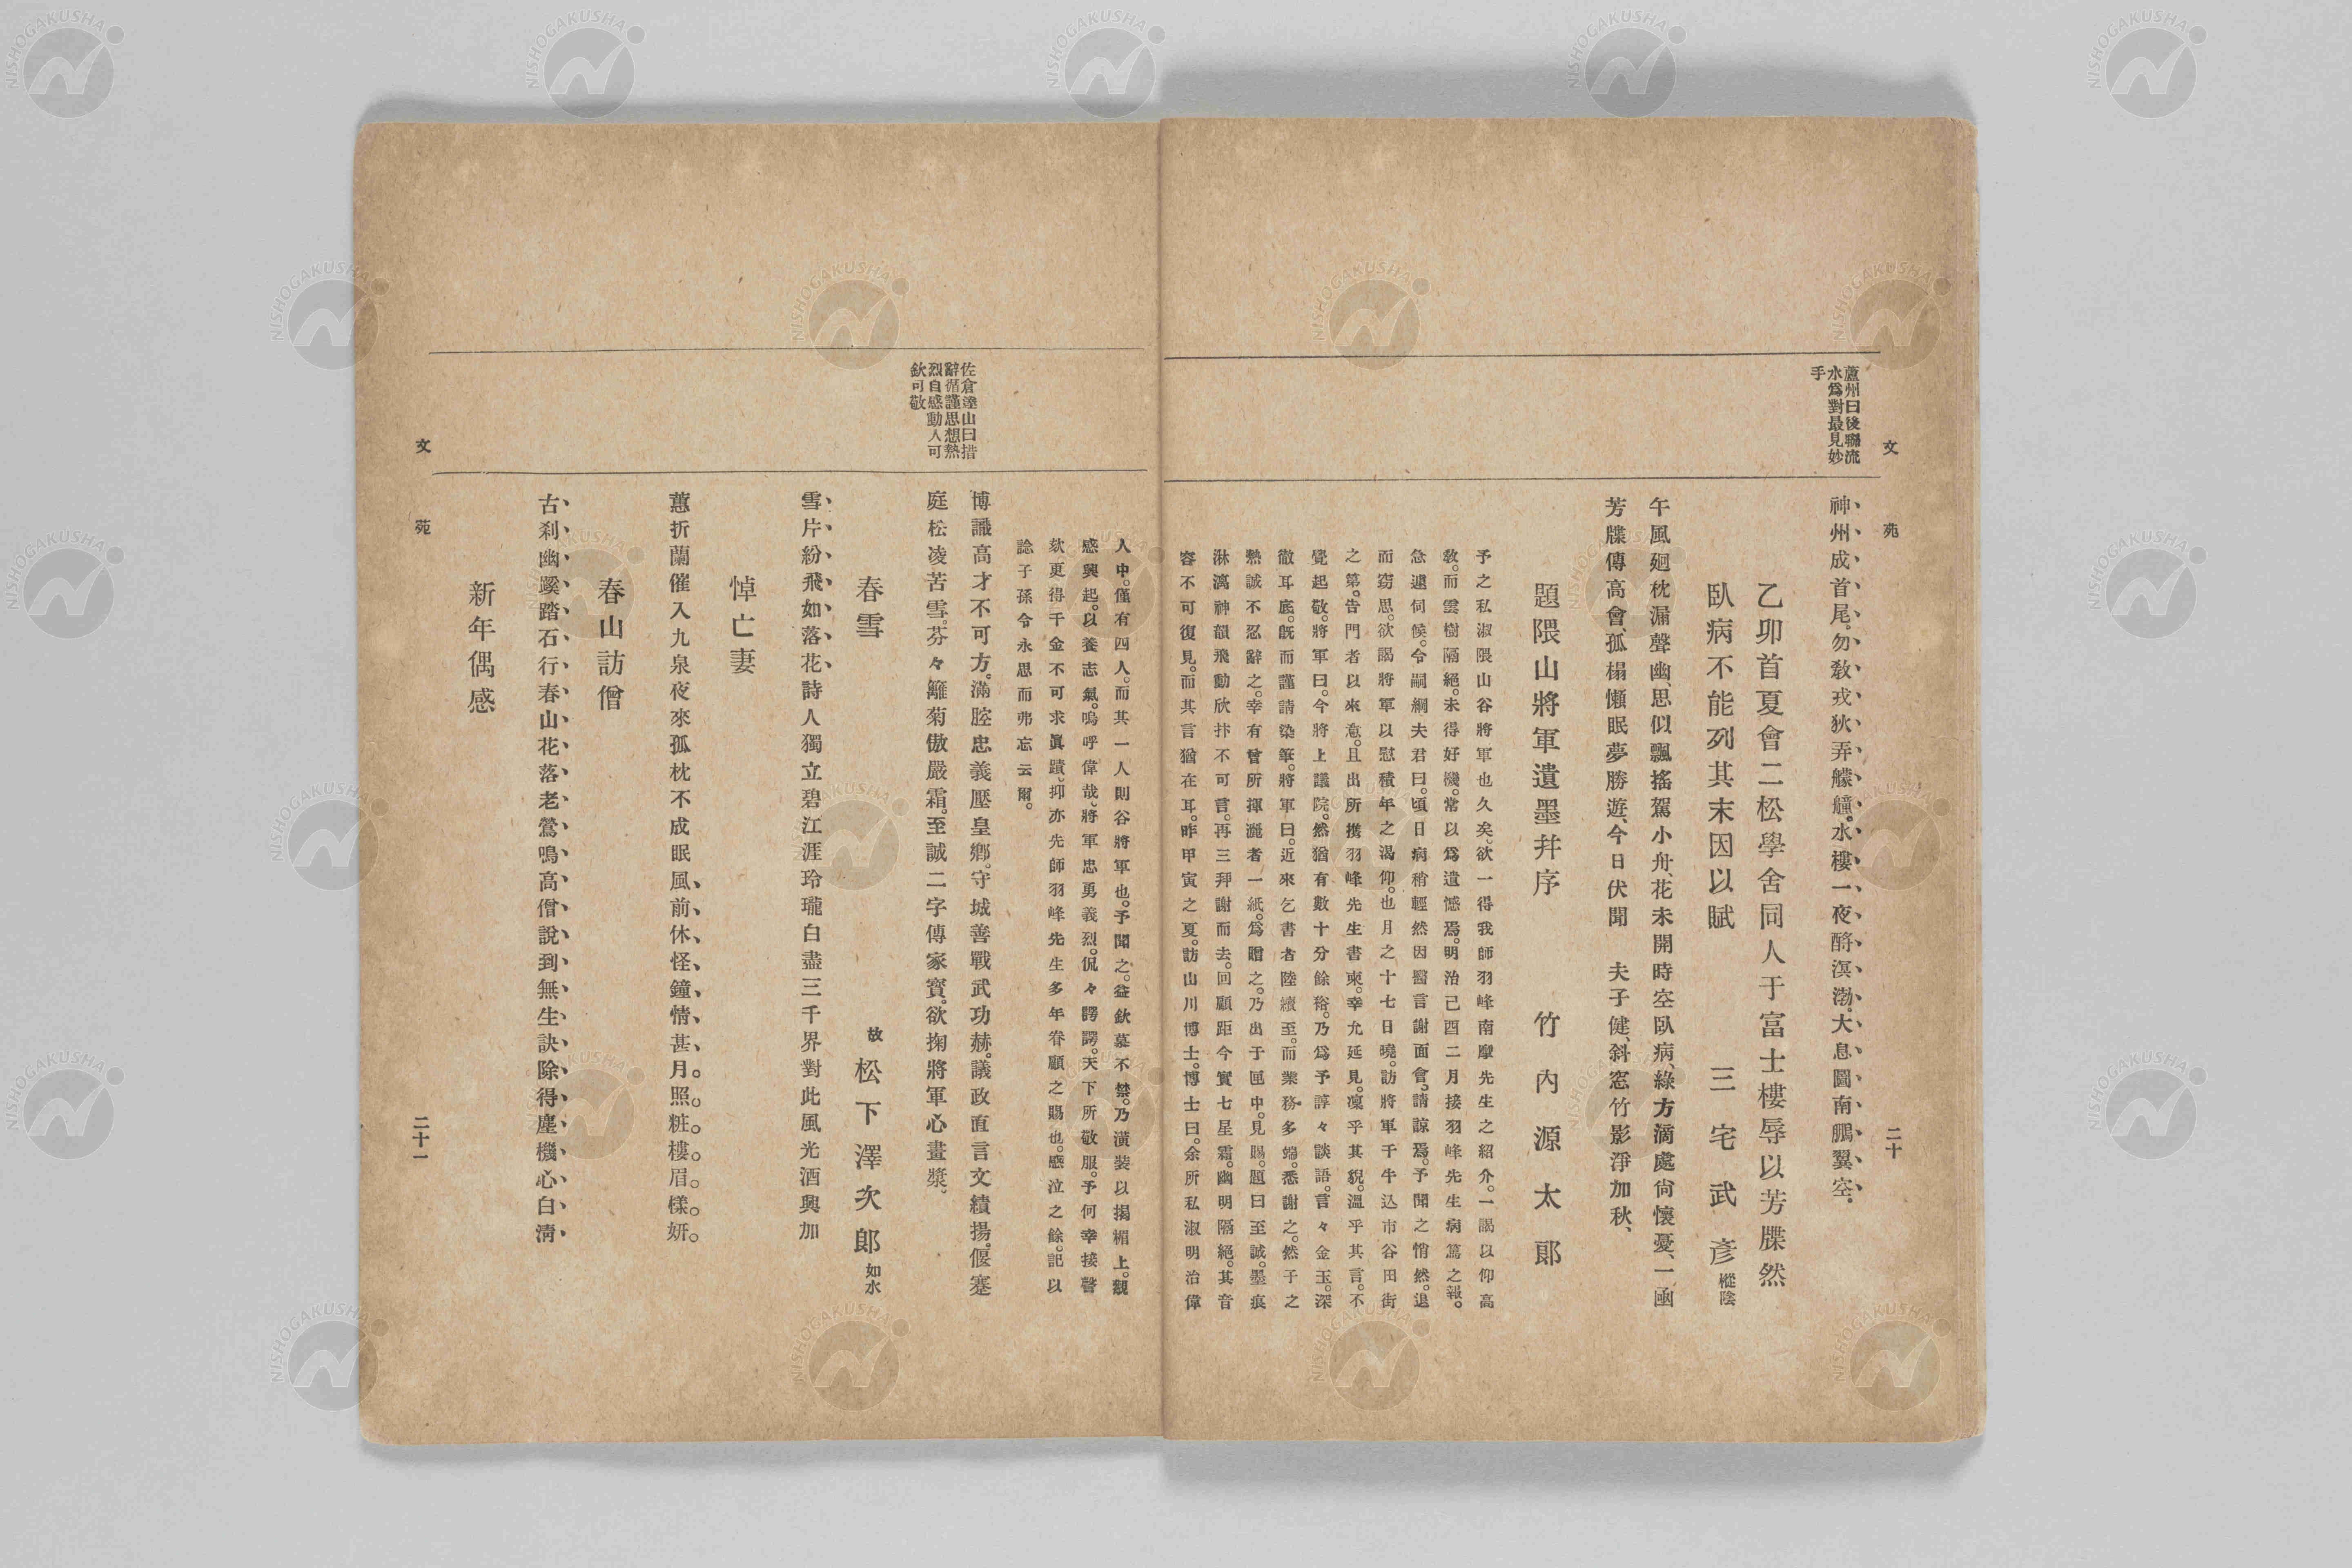 文苑
二十
蘆州曰後聯流
水爲對最見妙
手
神州成首尾。勿敎戎狄弄艨艟。水樓一夜醉溟渤。大息圖南鵬翼空。
乙卯首夏會二松學舍同人于富士樓辱以芳牒然
臥病不能列其末因以賦
三宅武彥樅陰
午風廻枕漏聲幽、思似飄搖駕小舟、花未開時空臥病、綠方滴處尙懷憂、一函
芳牒傳高會、孤榻懶眠夢勝遊、今日伏聞　夫子健、斜窓竹影淨加秋、
題隈山將軍遺墨幷序
竹內源太郎
予之私淑隈山谷將軍也久矣。欲一得我師羽峰南摩先生之紹介。一謁以仰高
敎。而雲樹隔絕。未得好機。常以爲遺憾焉。明治己酉二月接羽峰先生病篤之報。
急遽伺候。令嗣綱夫君曰。頃日病稍輕然因醫言謝面會。請諒焉。予聞之悄然。退
而窃思。欲謁將軍以慰積年之渴仰。也月之十七日曉。訪將軍于牛込市谷田街
之第。告門者以來意。且出所携羽峰先生書柬。幸允延見。凜乎其貌。溫乎其言。不
覺起敬。將軍曰。今將上議院。然猶有數十分餘裕。乃爲予諄々談語。言々金玉。深
徹耳底。旣而謹請染筆。將軍曰。近來乞書者陸續至。而業務多端。悉謝之。然于之
熱誠不忍辭之。幸有曾所揮灑者一紙。爲贈之。乃出于匣中。見賜。題曰至誠。墨痕
淋漓神韻飛動欣抃不可言。再三拜謝而去。回顧距今實七星霜。幽明隔絕。其音
容不可復見。而其言猶在耳。昨甲寅之夏。訪山川博士。博士曰。余所私淑明治偉
佐倉達山曰措
辭循謹思想熱
烈自感動人可
欽可敬
人中。僅有四人。而其一人則谷將軍也。予聞之。益欽慕不禁。乃潢裝以揭楣上。觀
感興起。以養志氣。嗚呼偉哉、將軍忠勇義烈。侃々諤諤。天下所敬服。予何幸接謦
欬更得千金不可求眞蹟、抑亦先師羽峰先生多年眷顧之賜也。感泣之餘。記以
諗子孫令永思而弗忘云爾。
博識高才不可方。滿腔忠義壓皇鄕。守城善戰武功赫。議政直言文績揚。偃蹇
庭松凌苦雪。芬々籬菊傲嚴霜。至誠二字傳家寶。欲掬將軍心畫漿。
春雪
故松下澤次郎如水
雪片紛飛如落花詩人獨立碧江涯玲瓏白盡三千界對此風光酒興加
悼亡妻
蕙折蘭催入九泉夜來孤枕不成眠風前休怪鐘情甚月照粧樓眉樣姸。
春山訪僧
古刹幽蹊踏石行春山花落老鶯鳴高僧說到無生訣除得塵機心自淸
新年偶感
文苑
二十一